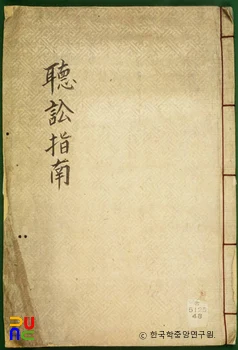 聽訟指南
ⓒ 한국학중앙연구원